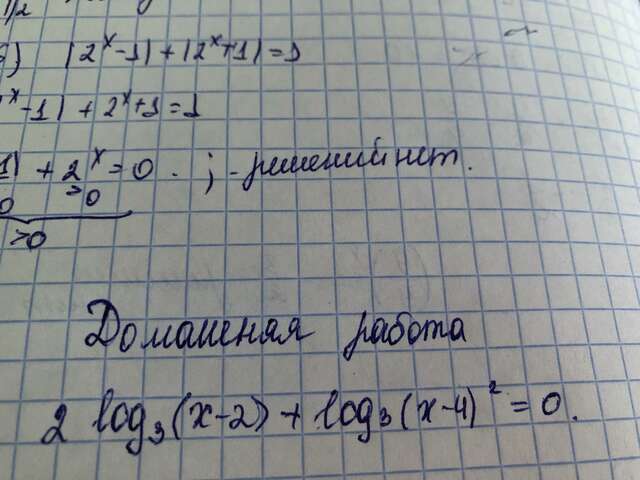 |2ˣ-1| + |2ˣ+1| = 1
ˣ-1| + 2ˣ+1 = 1
1| + 2ˣ = 0 . ; - решений нет.
0 >0
>0
Домашняя работа
2 log₃(x-2) + log₃(x-4)² = 0.